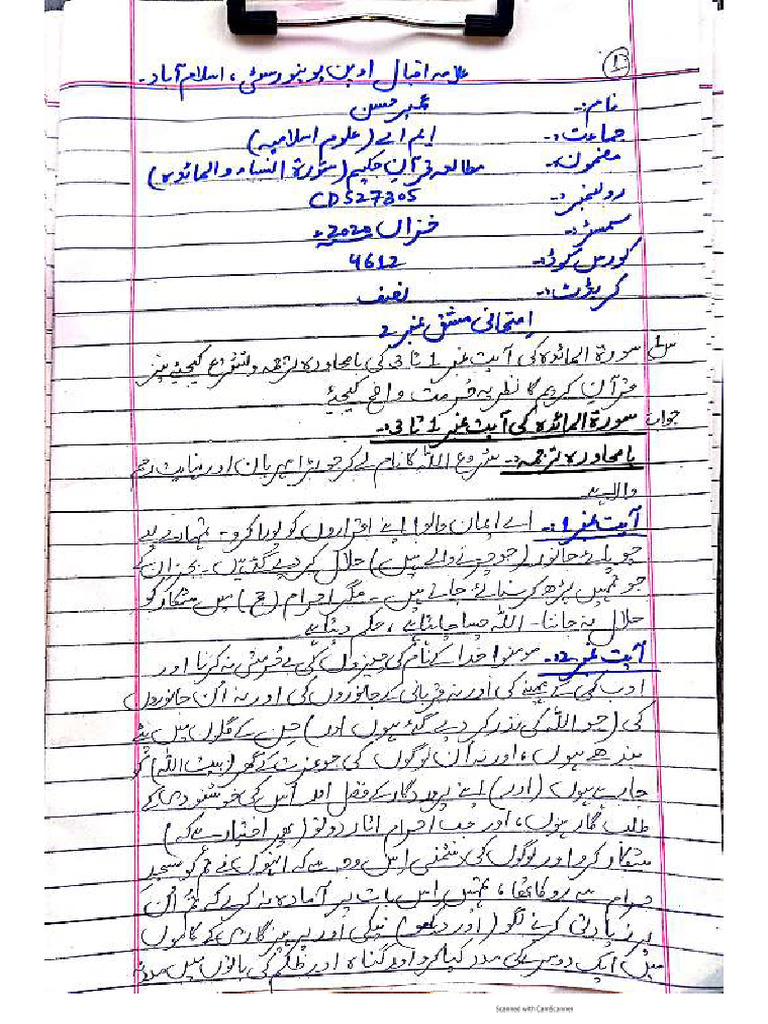 1
علامہ اقبال اوپن یونیورسٹی، اسلام آباد۔
نام:۔ عمیر حسن
جماعت:۔ ایم اے (علوم اسلامیہ)
مضمون:۔ مطالعہ قرآن حکیم (سورۃ النساء والمائدہ)
رولنمبر:۔ CD527305
سمسٹر:۔ خزاں 2020ء
کورس کوڈ:۔ 4612
کریڈٹ:۔ نصف
امتحانی مشق نمبر 2
سوال سورۃ المائدہ کی آیت نمبر 1 تا 3 کی بامحاورہ ترجمہ و تشریح کیجیئے نیز
قرآن کریم کا نظریہ حرمت واضح کیجیئے
جواب سورۃ المائدہ کی آیت نمبر 1 تا 3:۔
بامحاورہ ترجمہ:۔ شروع اللہ کا نام لے کر جو بڑا مہربان اور نہایت رحم
والا ہے۔
آیت نمبر 1:۔ اے ایمان والو! اپنے اقراروں کو پورا کرو۔ تمہارے لیے
چوپائے جانور (جو چرنے والے ہیں) حلال کر دیے گئے ہیں۔ بجز ان کے
جو تمہیں پڑھ کر سنائے جاتے ہیں۔ مگر احرام (حج) میں شکار کو
حلال نہ جاننا۔ اللہ جیسا چاہتا ہے، حکم دیتا ہے۔
آیت نمبر 2:۔ مومنو! خدا کے نام کی چیزوں کی بے حرمتی نہ کرنا اور
ادب کے مہینے کی اور نہ قربانی کے جانوروں کی اور نہ ان جانوروں
کی (جو اللہ کی نذر کر دیے گئے ہوں اور) جن کے گلوں میں پٹے
بندھے ہوں، اور نہ ان لوگوں کی جو عزت کے گھر (بیت اللہ) کو
جا رہے ہوں (اور) اپنے پروردگار کے فضل اور اس کی خوشنودی کے
طلب گار ہوں، اور جب احرام اتار دو تو (پھر اختیار ہے کہ)
شکار کرو اور لوگوں کی دشمنی اس وجہ سے کہ انہوں نے تم کو مسجد
حرام سے روکا تھا، تمہیں اس بات پر آمادہ نہ کرے کہ تم ان
پر زیادتی کرنے لگو (اور دیکھو) نیکی اور پرہیزگاری کے کاموں
میں ایک دوسرے کی مدد کیا کرو اور گناہ اور ظلم کی باتوں میں مدد نہ
Scanned with CamScanner